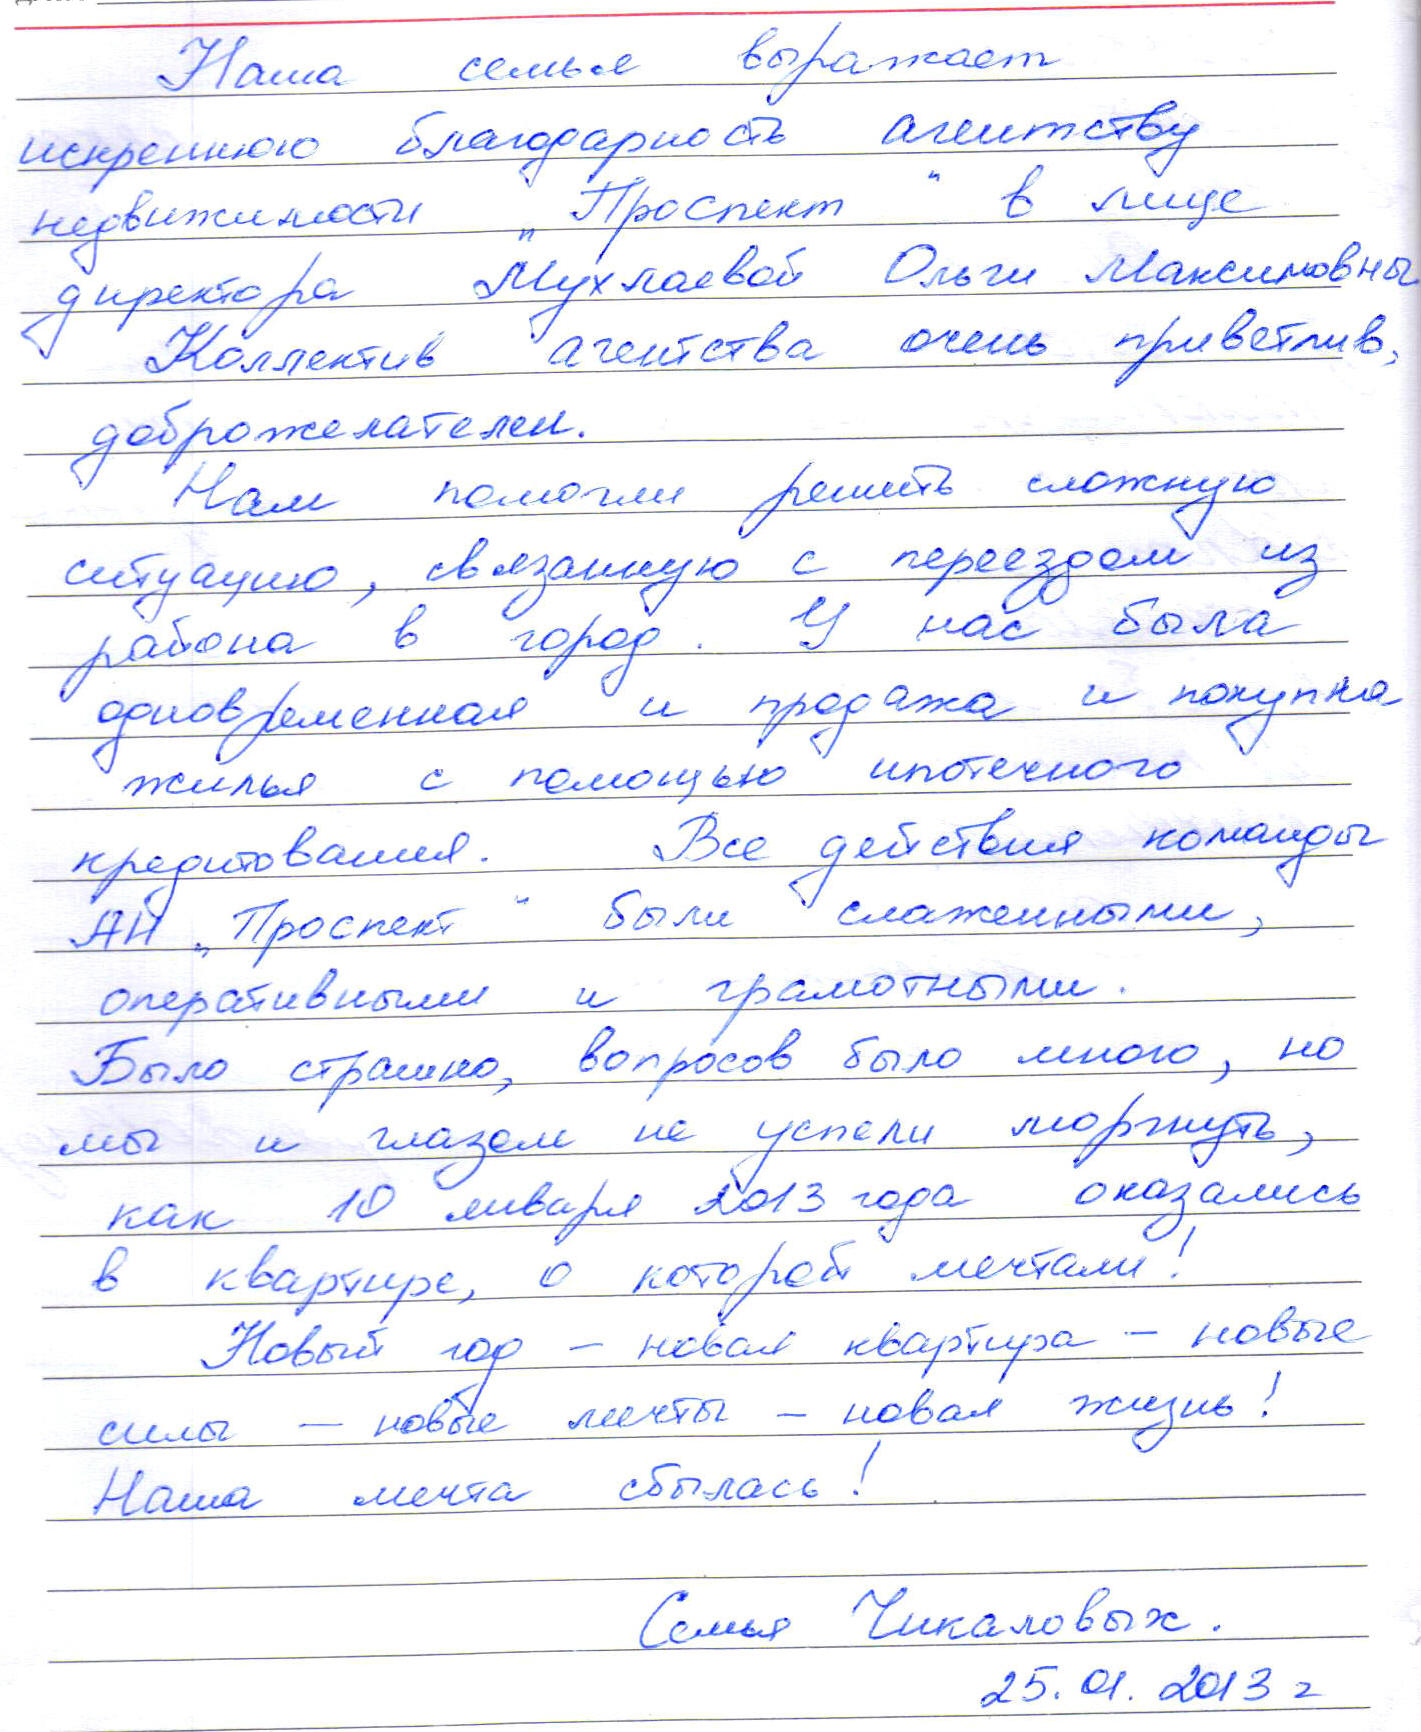 Наша семья выражает
искреннюю благодарность агентству
недвижимости „Проспект“ в лице
директора Мухлаевой Ольги Максимовны
Коллектив агентства очень приветлив,
доброжелателен.
Нам помогли решить сложную
ситуацию, связанную с переездом из
района в город. У нас была
одновременная и продажа и покупка
жилья с помощью ипотечного
кредитования. Все действия команды
АН „Проспект“ были слаженными,
оперативными и грамотными.
Было страшно, вопросов было много, но
мы и глазом не успели моргнуть,
как 10 января 2013 года оказались
в квартире, о которой мечтали!
Новый год – новая квартира – новые
силы – новые мечты – новая жизнь!
Наша мечта сбылась!
Семья Чикаловых.
25.01.2013 г